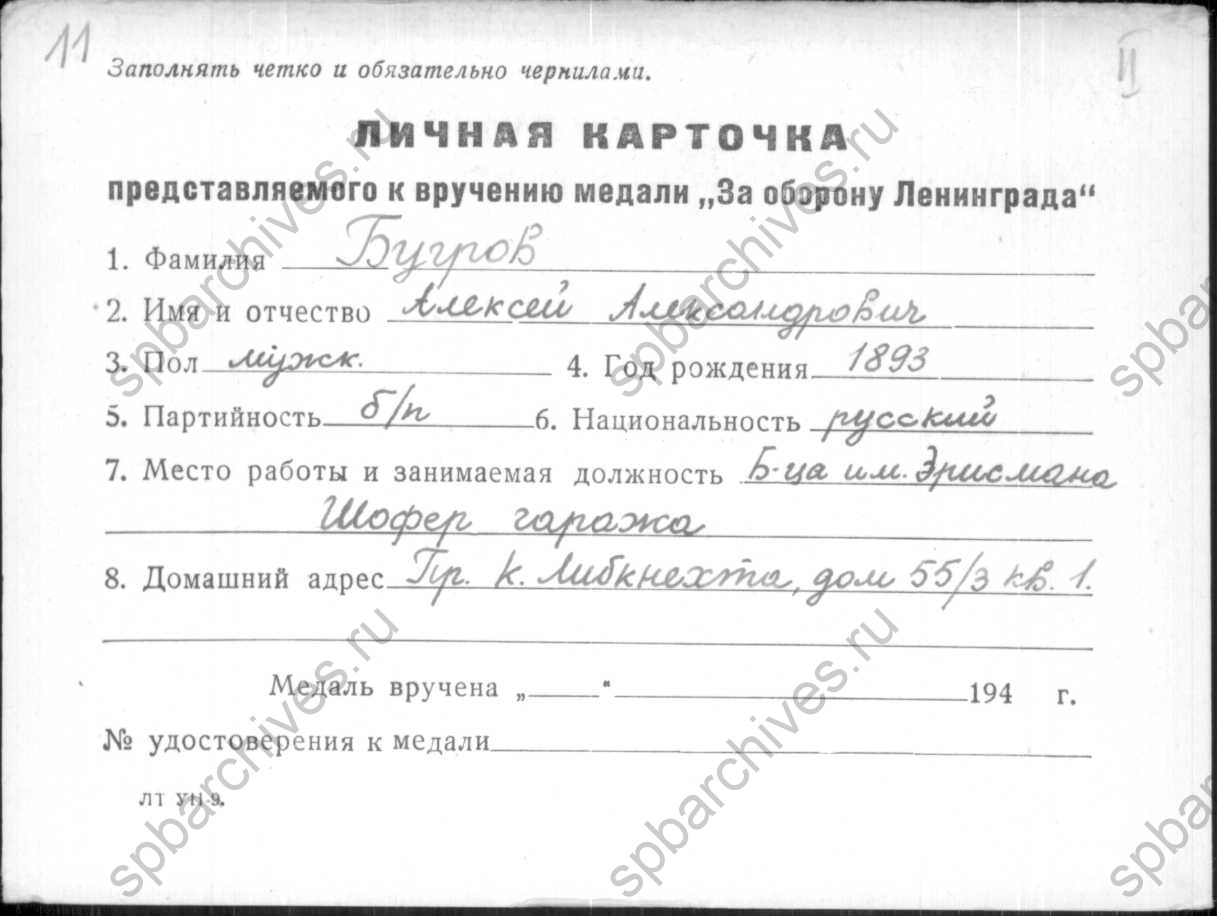 11 11
Заполнять четко и обязательно чернилами.
ЛИЧНАЯ КАРТОЧКА
представляемого к вручению медали „За оборону Ленинграда“
1. Фамилия Бугров
2. Имя и отчество Алексей Александрович
3. Пол мужск. 4. Год рождения 1893
5. Партийность б/п 6. Национальность русский
7. Место работы и занимаемая должность Б-ца им. Эрисмана
Шофер гаража
8. Домашний адрес Пр. К. Либкнехта, дом 55/3 кв. 1.
Медаль вручена „ “ 194 г.
№ удостоверения к медали
spbarchives.ru